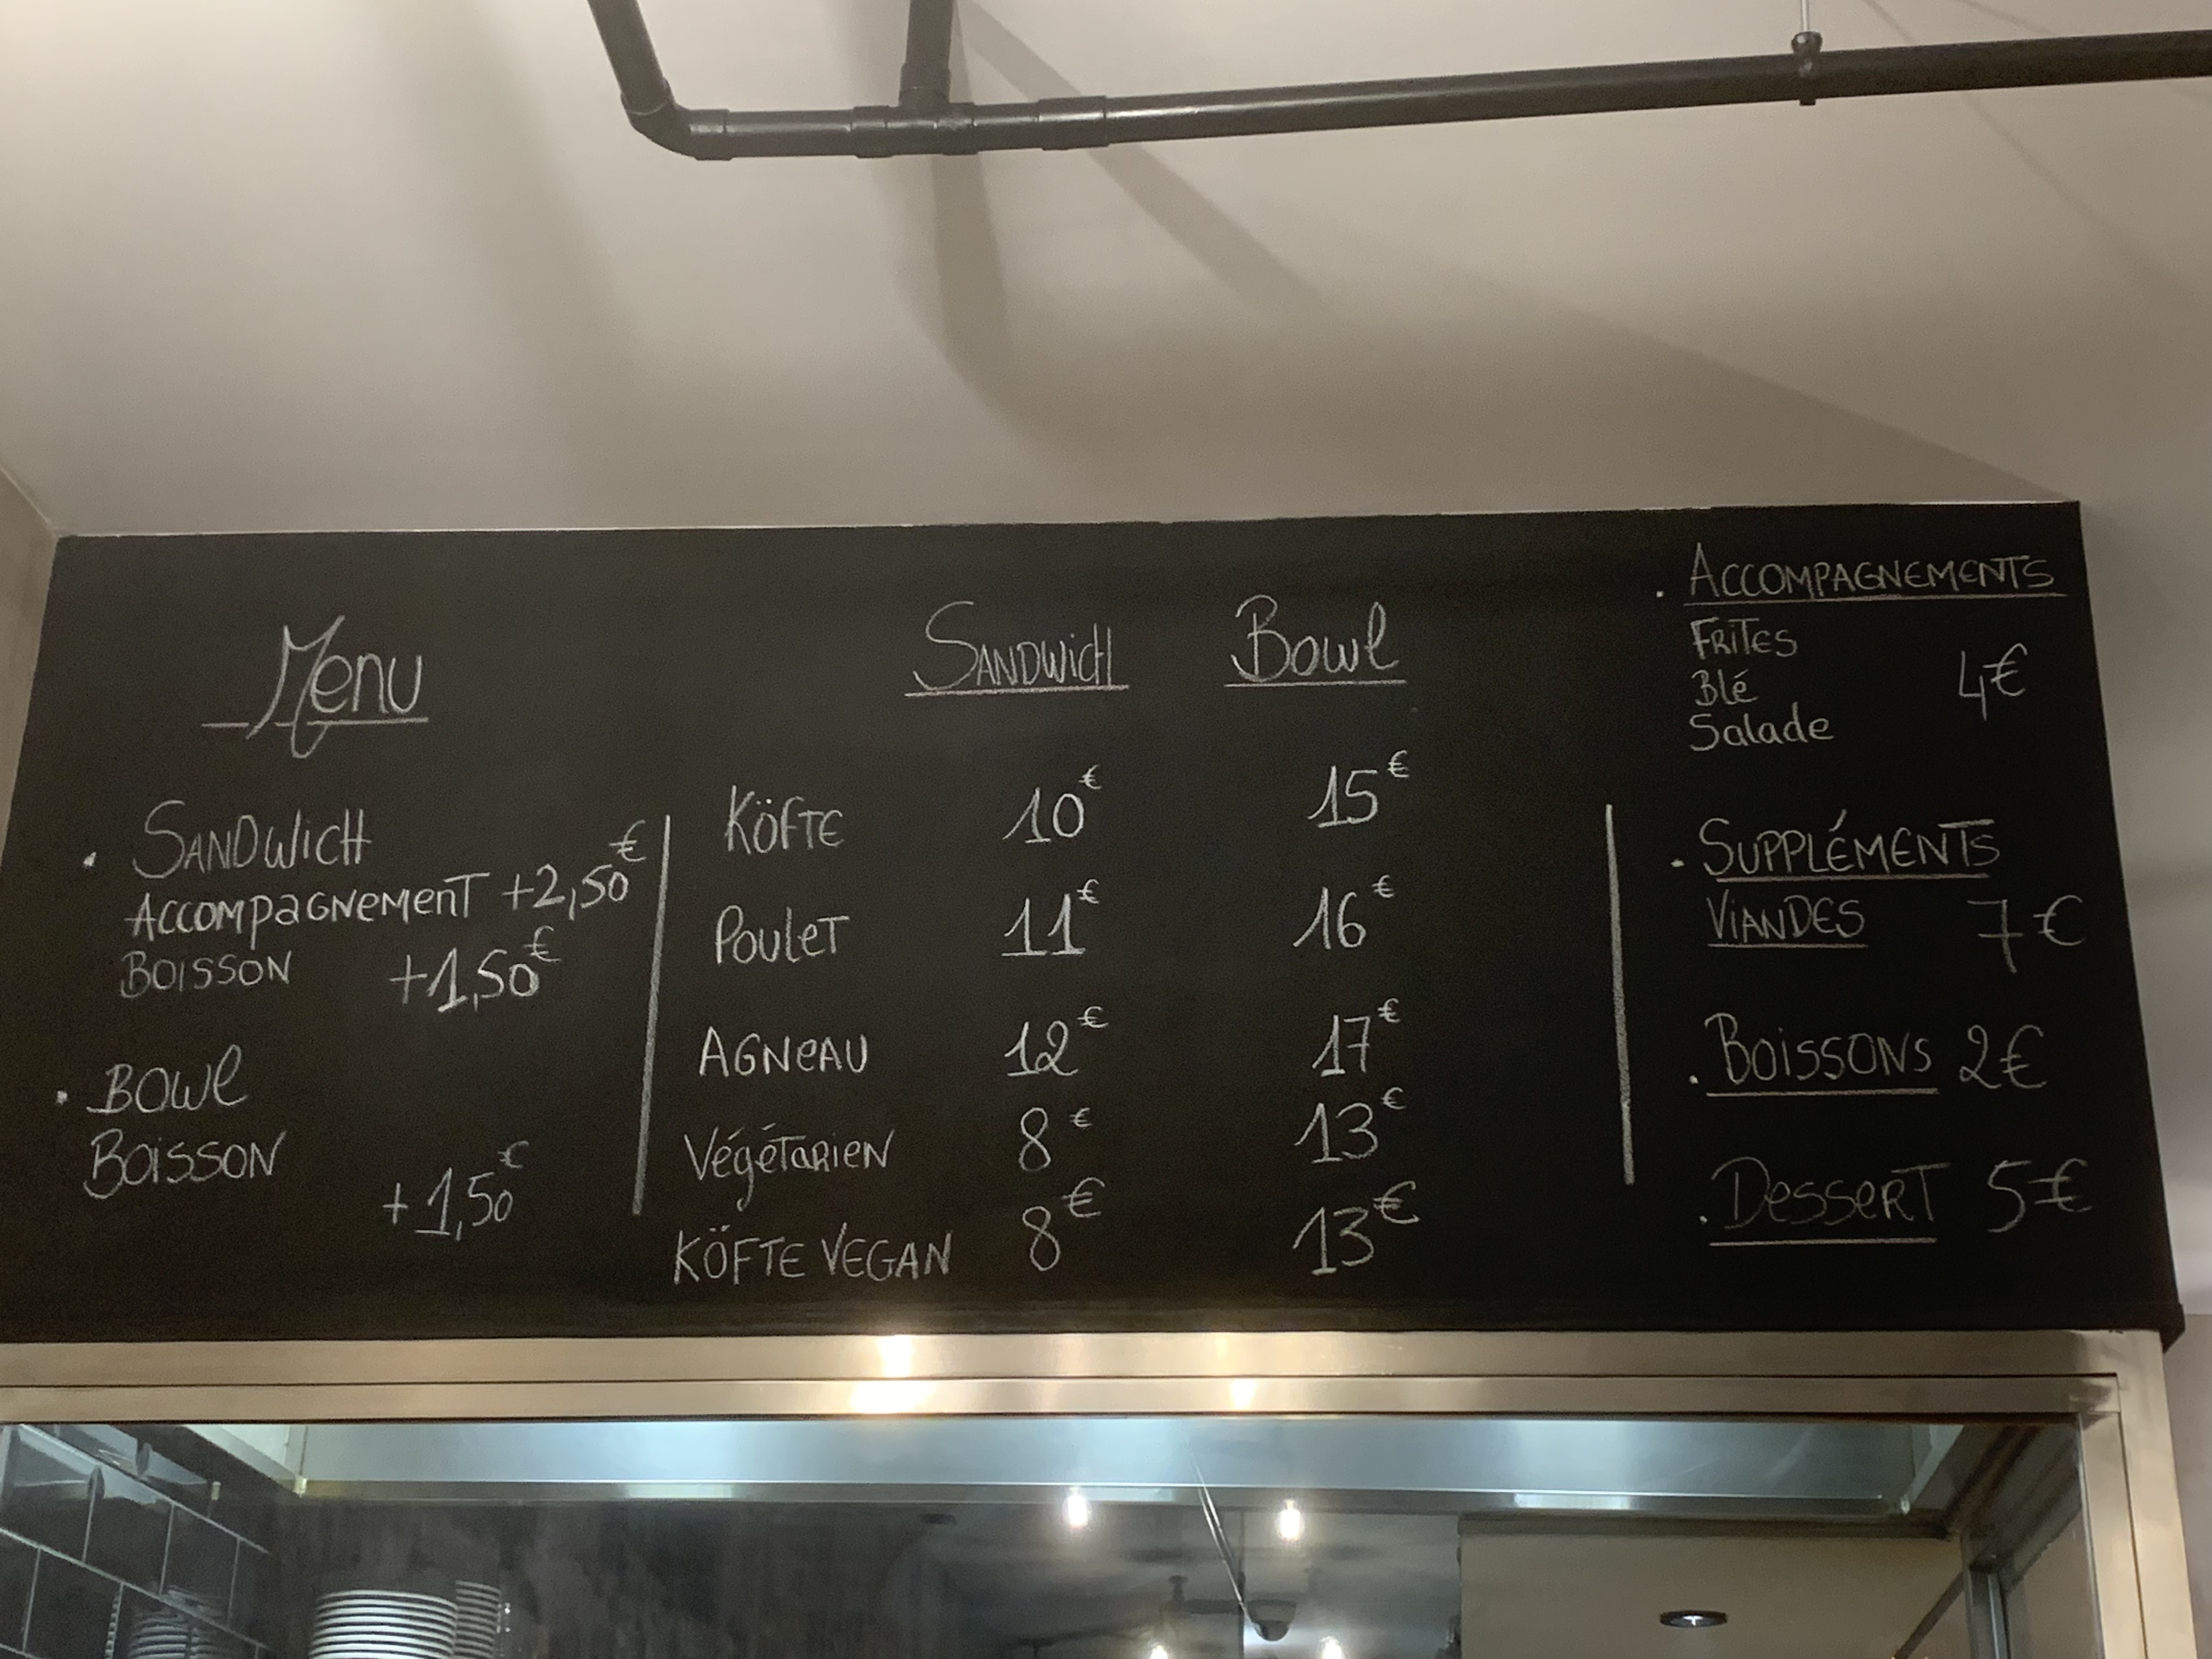 Menu
. SANDWICH
ACCOMPAGNEMENT +2,50€
BOISSON +1,50€
. BOWL
BOISSON
+1,50€
SANDWICH Bowl
KÖFTE 10€ 15€
POULET 11€ 16€
AGNEAU 12€ 17€
VÉGÉTARIEN 8€ 13€
KÖFTE VEGAN 8€ 13€
. ACCOMPAGNEMENTS
FRITES
Blé 4€
Salade
. SUPPLÉMENTS
VIANDES 7€
. BOISSONS 2€
. DESSERT 5€